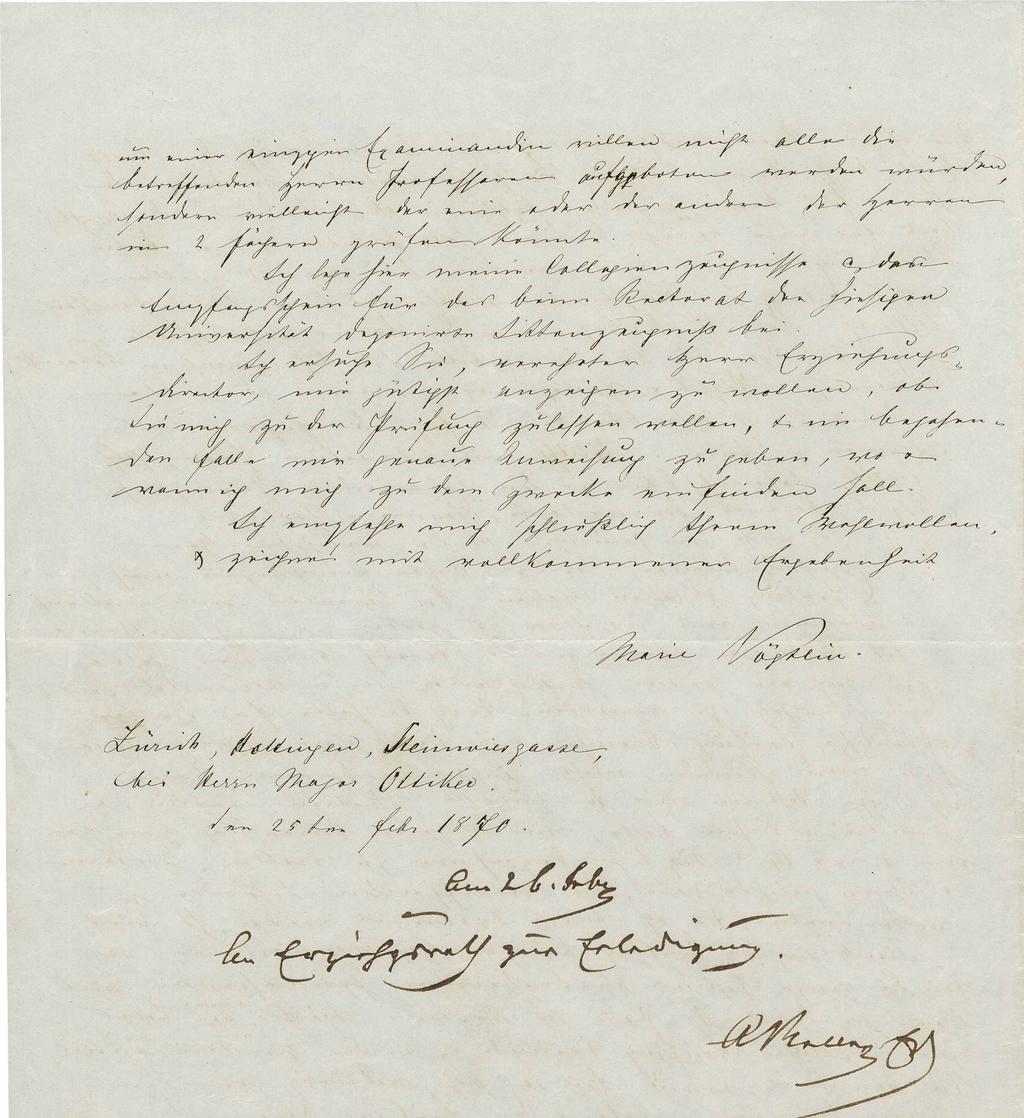 um einer einzigen Examinandin willen nicht alle die
betreffenden Herren Professoren aufgeboten werden würden,
sondern vielleicht der eine oder der andere der Herren
in 2 Fächern prüfen könnte.
Ich lege hier meine Collegienzeugnisse & den
Empfangsschein für das beim Rectorat der hiesigen
Universität deponirte Sittenzeugniß bei.
Ich ersuche Sie, verehrter Herr Erziehungs=
director, mir gütigst anzeigen zu wollen, ob
Sie mich zu der Prüfung zulassen wollen, & im bejahen=
den Falle mir genaue Anweisung zu geben, wo &
wann ich mich zu dem Zwecke einfinden soll.
Ich empfehle mich schließlich Ihrem Wohlwollen,
& zeichne mit vollkommener Ergebenheit
Marie Vögtlin.
Zürich, Hottingen, Steinwiesgasse,
bei Herrn Major Ottiker.
den 25ten Febr 1870.
Am 26. Febr
An Erziehgsrath zur Erledigung.